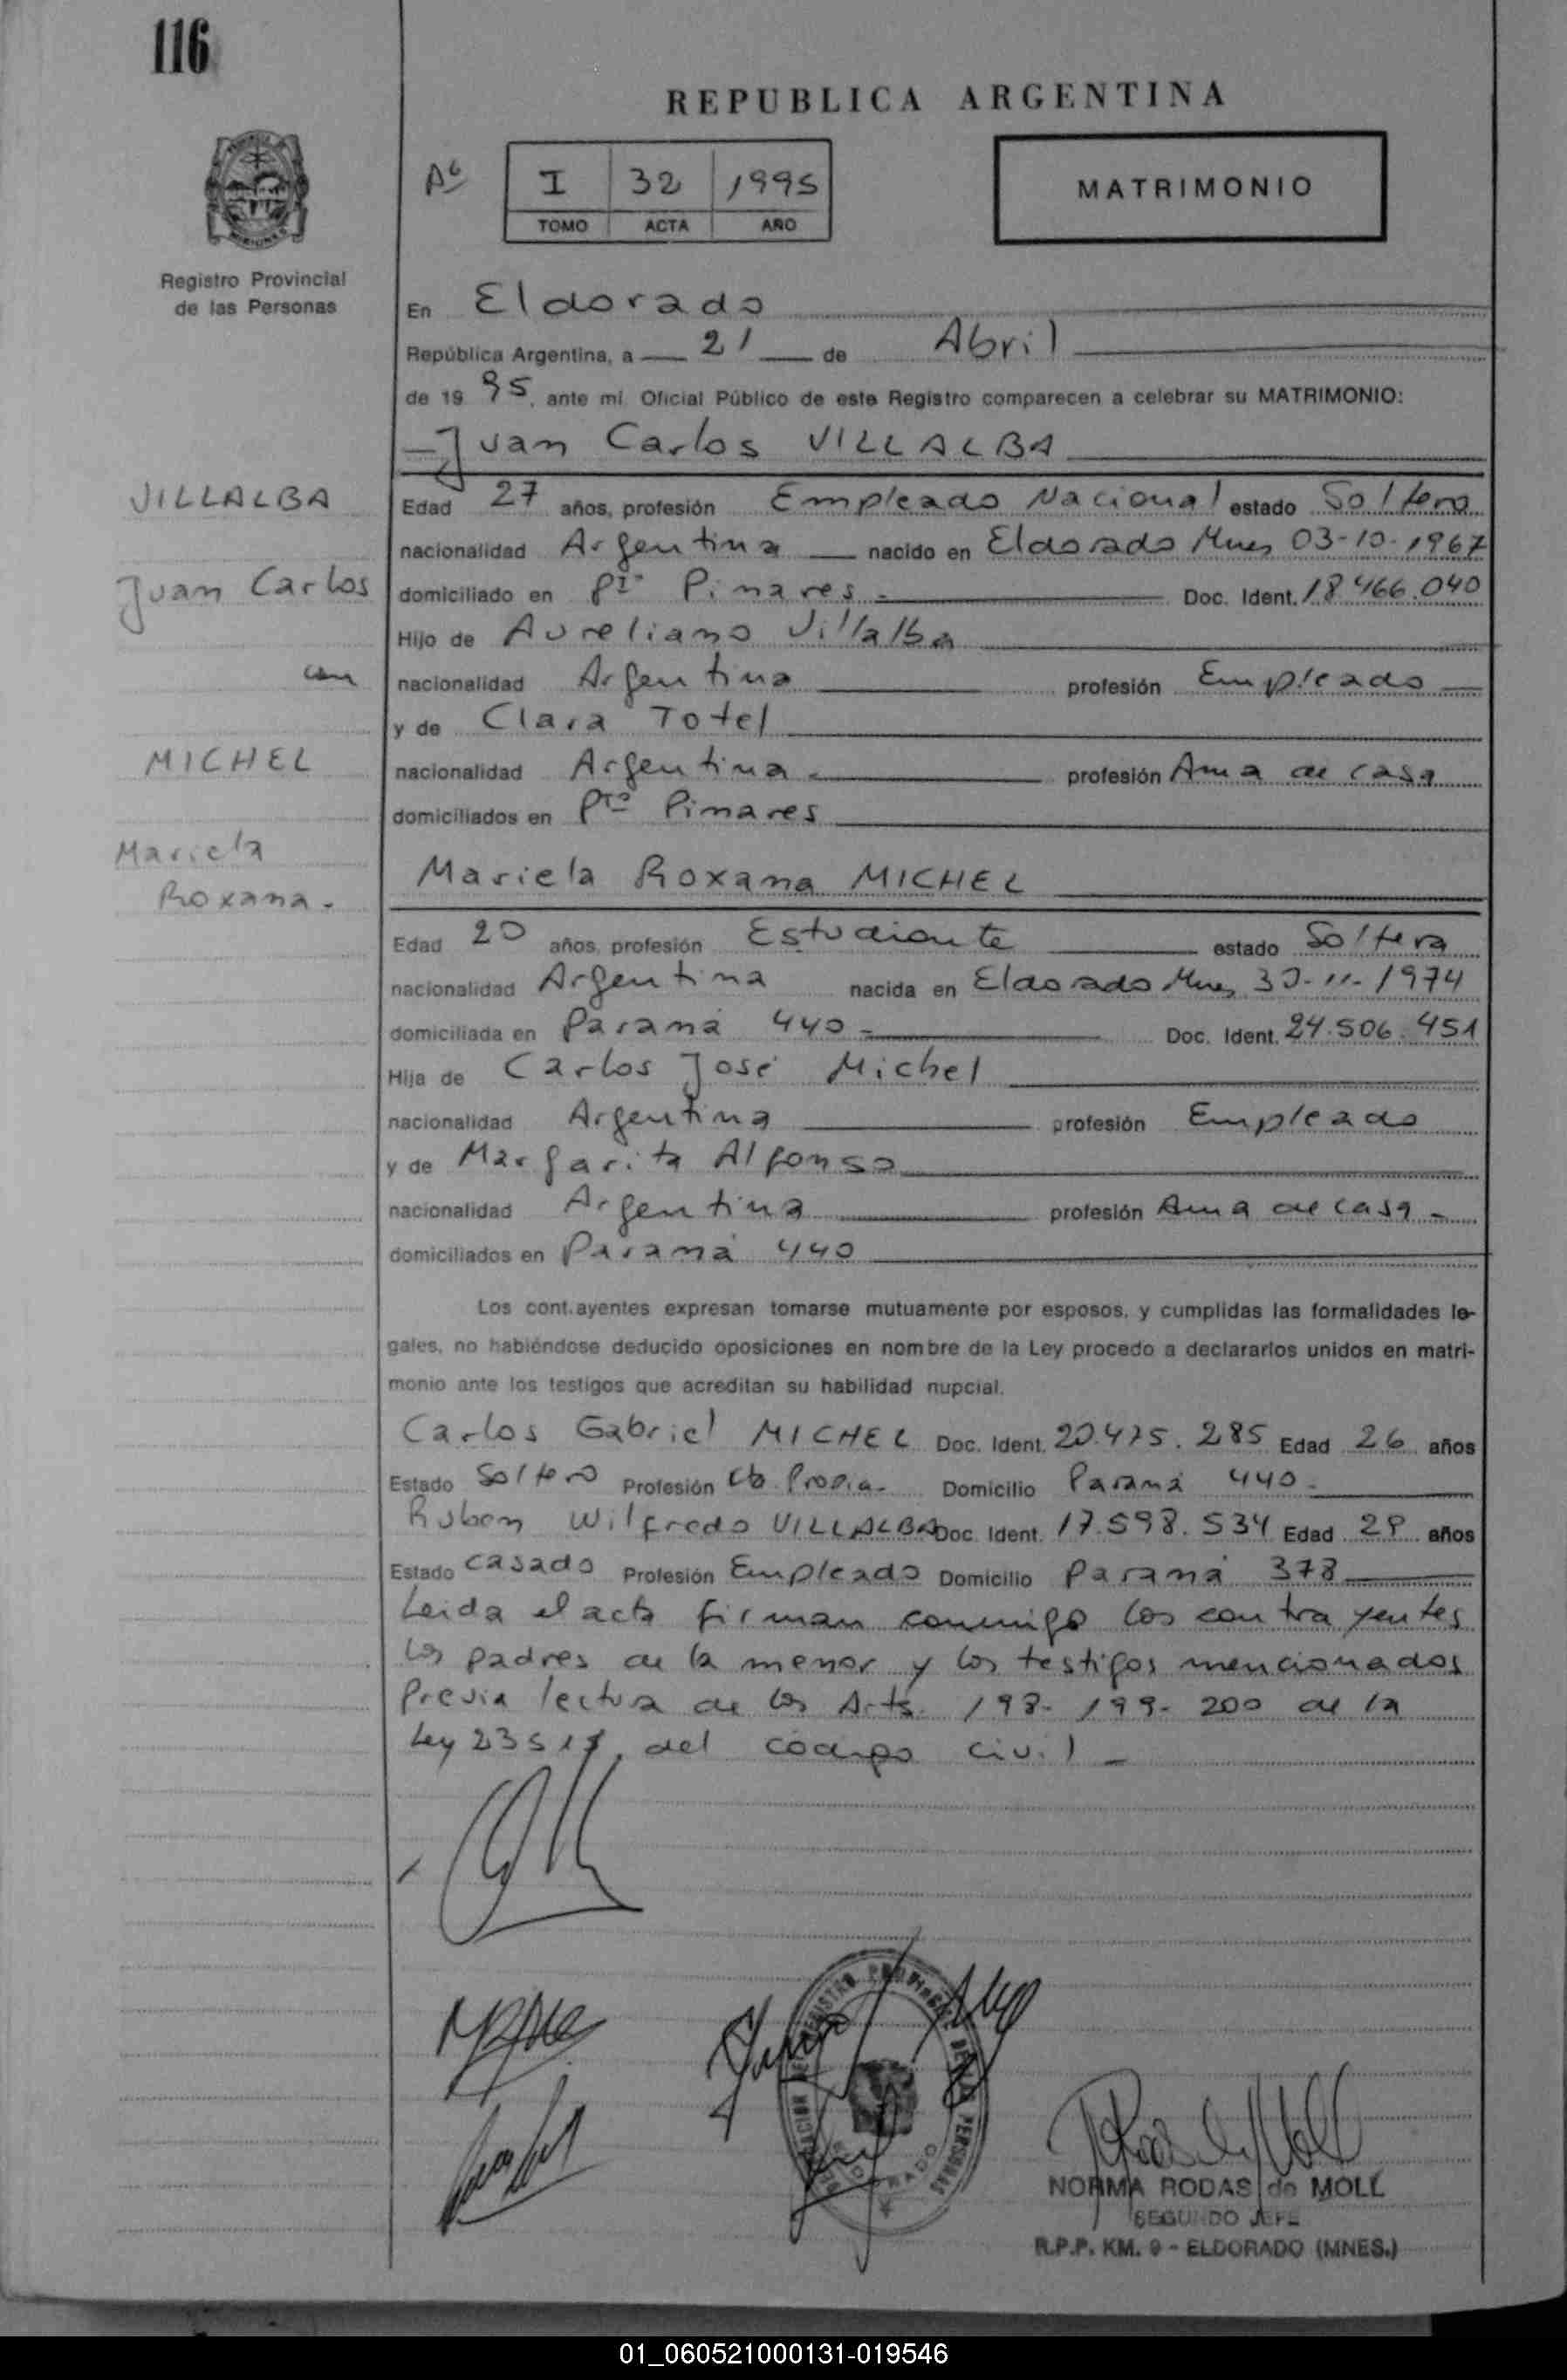 116
REPUBLICA ARGENTINA
I 32 1995
TOMO ACTA AÑO
MATRIMONIO
Registro Provincial
de las Personas
En Eldorado
República Argentina, a 21 de Abril
de 19 95, ante mí Oficial Público de este Registro comparecen a celebrar su MATRIMONIO:
Juan Carlos VILLALBA
VILLALBA
Juan Carlos
con
MICHEL
Mariela
Roxana.
Edad 27 años, profesión Empleado Nacional estado Soltero
nacionalidad Argentina nacido en Eldorado Mnes 03-10-1967
domiciliado en Pto Pinares Doc. Ident. 18.466.040
Hijo de Aureliano Villalba
nacionalidad Argentina profesión Empleado
y de Clara Totel
nacionalidad Argentina profesión Ama de casa
domiciliados en Pto Pinares
Mariela Roxana MICHEL
Edad 20 años, profesión Estudiante estado Soltera
nacionalidad Argentina nacida en Eldorado Mnes 30-11-1974
domiciliada en Paraná 440 Doc. Ident. 24.506.451
Hija de Carlos José Michel
nacionalidad Argentina profesión Empleado
y de Margarita Alfonso
nacionalidad Argentina profesión Ama de casa
domiciliados en Paraná 440
Los cont.ayentes expresan tomarse mutuamente por esposos, y cumplidas las formalidades le-
gales, no habiéndose deducido oposiciones en nombre de la Ley procedo a declararlos unidos en matri-
monio ante los testigos que acreditan su habilidad nupcial.
Carlos Gabriel MICHEL Doc. Ident. 20.475.285 Edad 26 años
Estado Soltero Profesión Cta. Propia Domicilio Paraná 440
Ruben Wilfredo VILLALBA Doc. Ident. 17.598.534 Edad 29 años
Estado casado Profesión Empleado Domicilio Paraná 378
Leida el acta firman conmigo los contrayentes
los padres de la menor y los testigos mencionados
Previa lectura de los Arts. 198- 199- 200 de la
Ley 23515, del codigo civil
NORMA RODAS de MOLL
SEGUNDO JEFE
R.P.P. KM. 9 - ELDORADO (MNES.)
01_060521000131-019546